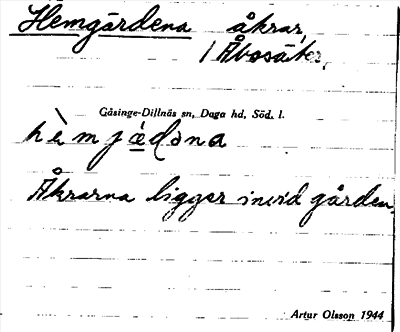 Hemgårdena åkrar,
/ Åbosäter,
Gåsinge-Dillnäs sn, Daga hd, Söd. l.
hèmjǽdəna
Åkrarna ligger invid gården.
Artur Olsson 1944